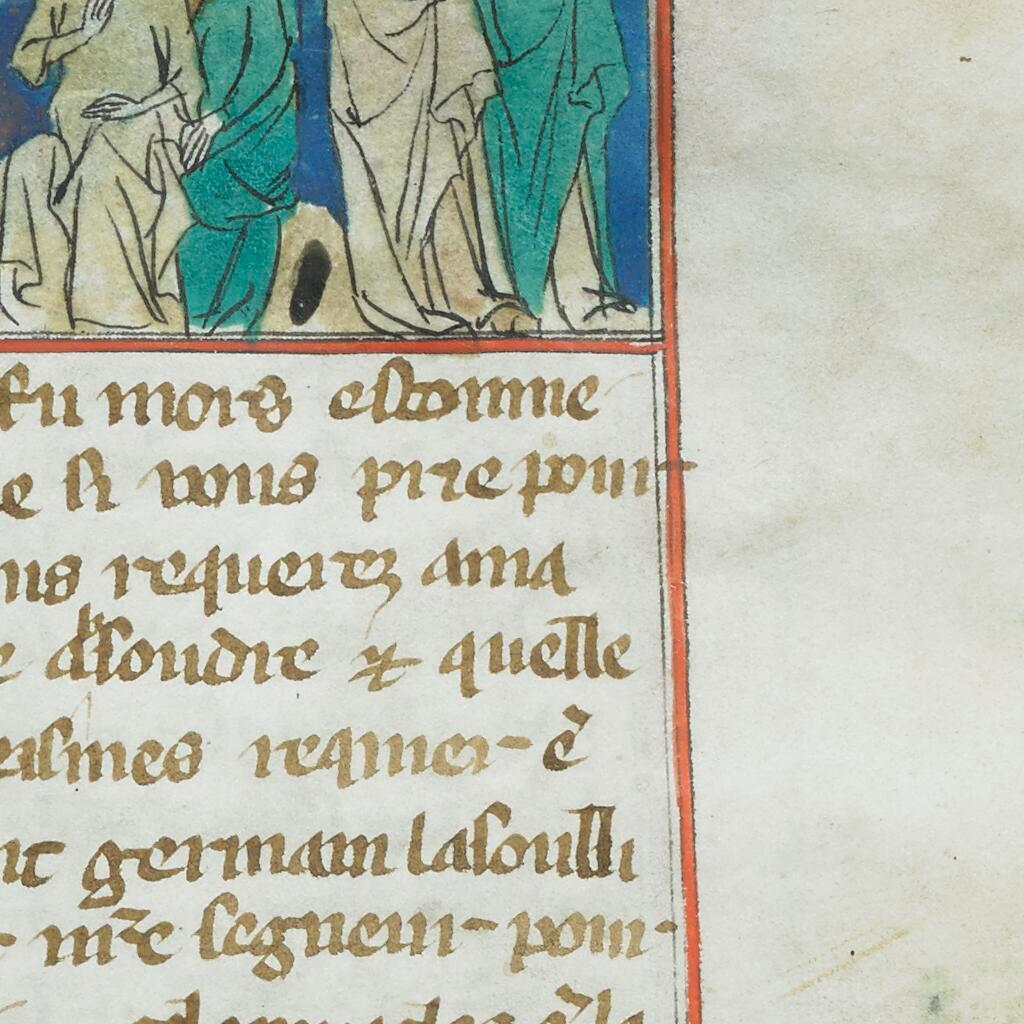 fu mors estoume
e si vous prie pour
us requerez ama
e assoudre ⁊ quelle
eismes requier ẽ
nt germain lasoulli
mr̃e segneur pour